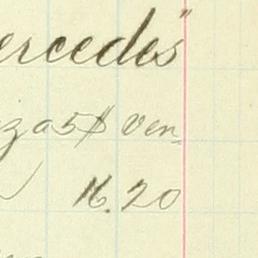 ercedes"
za 5$ ven
16.20